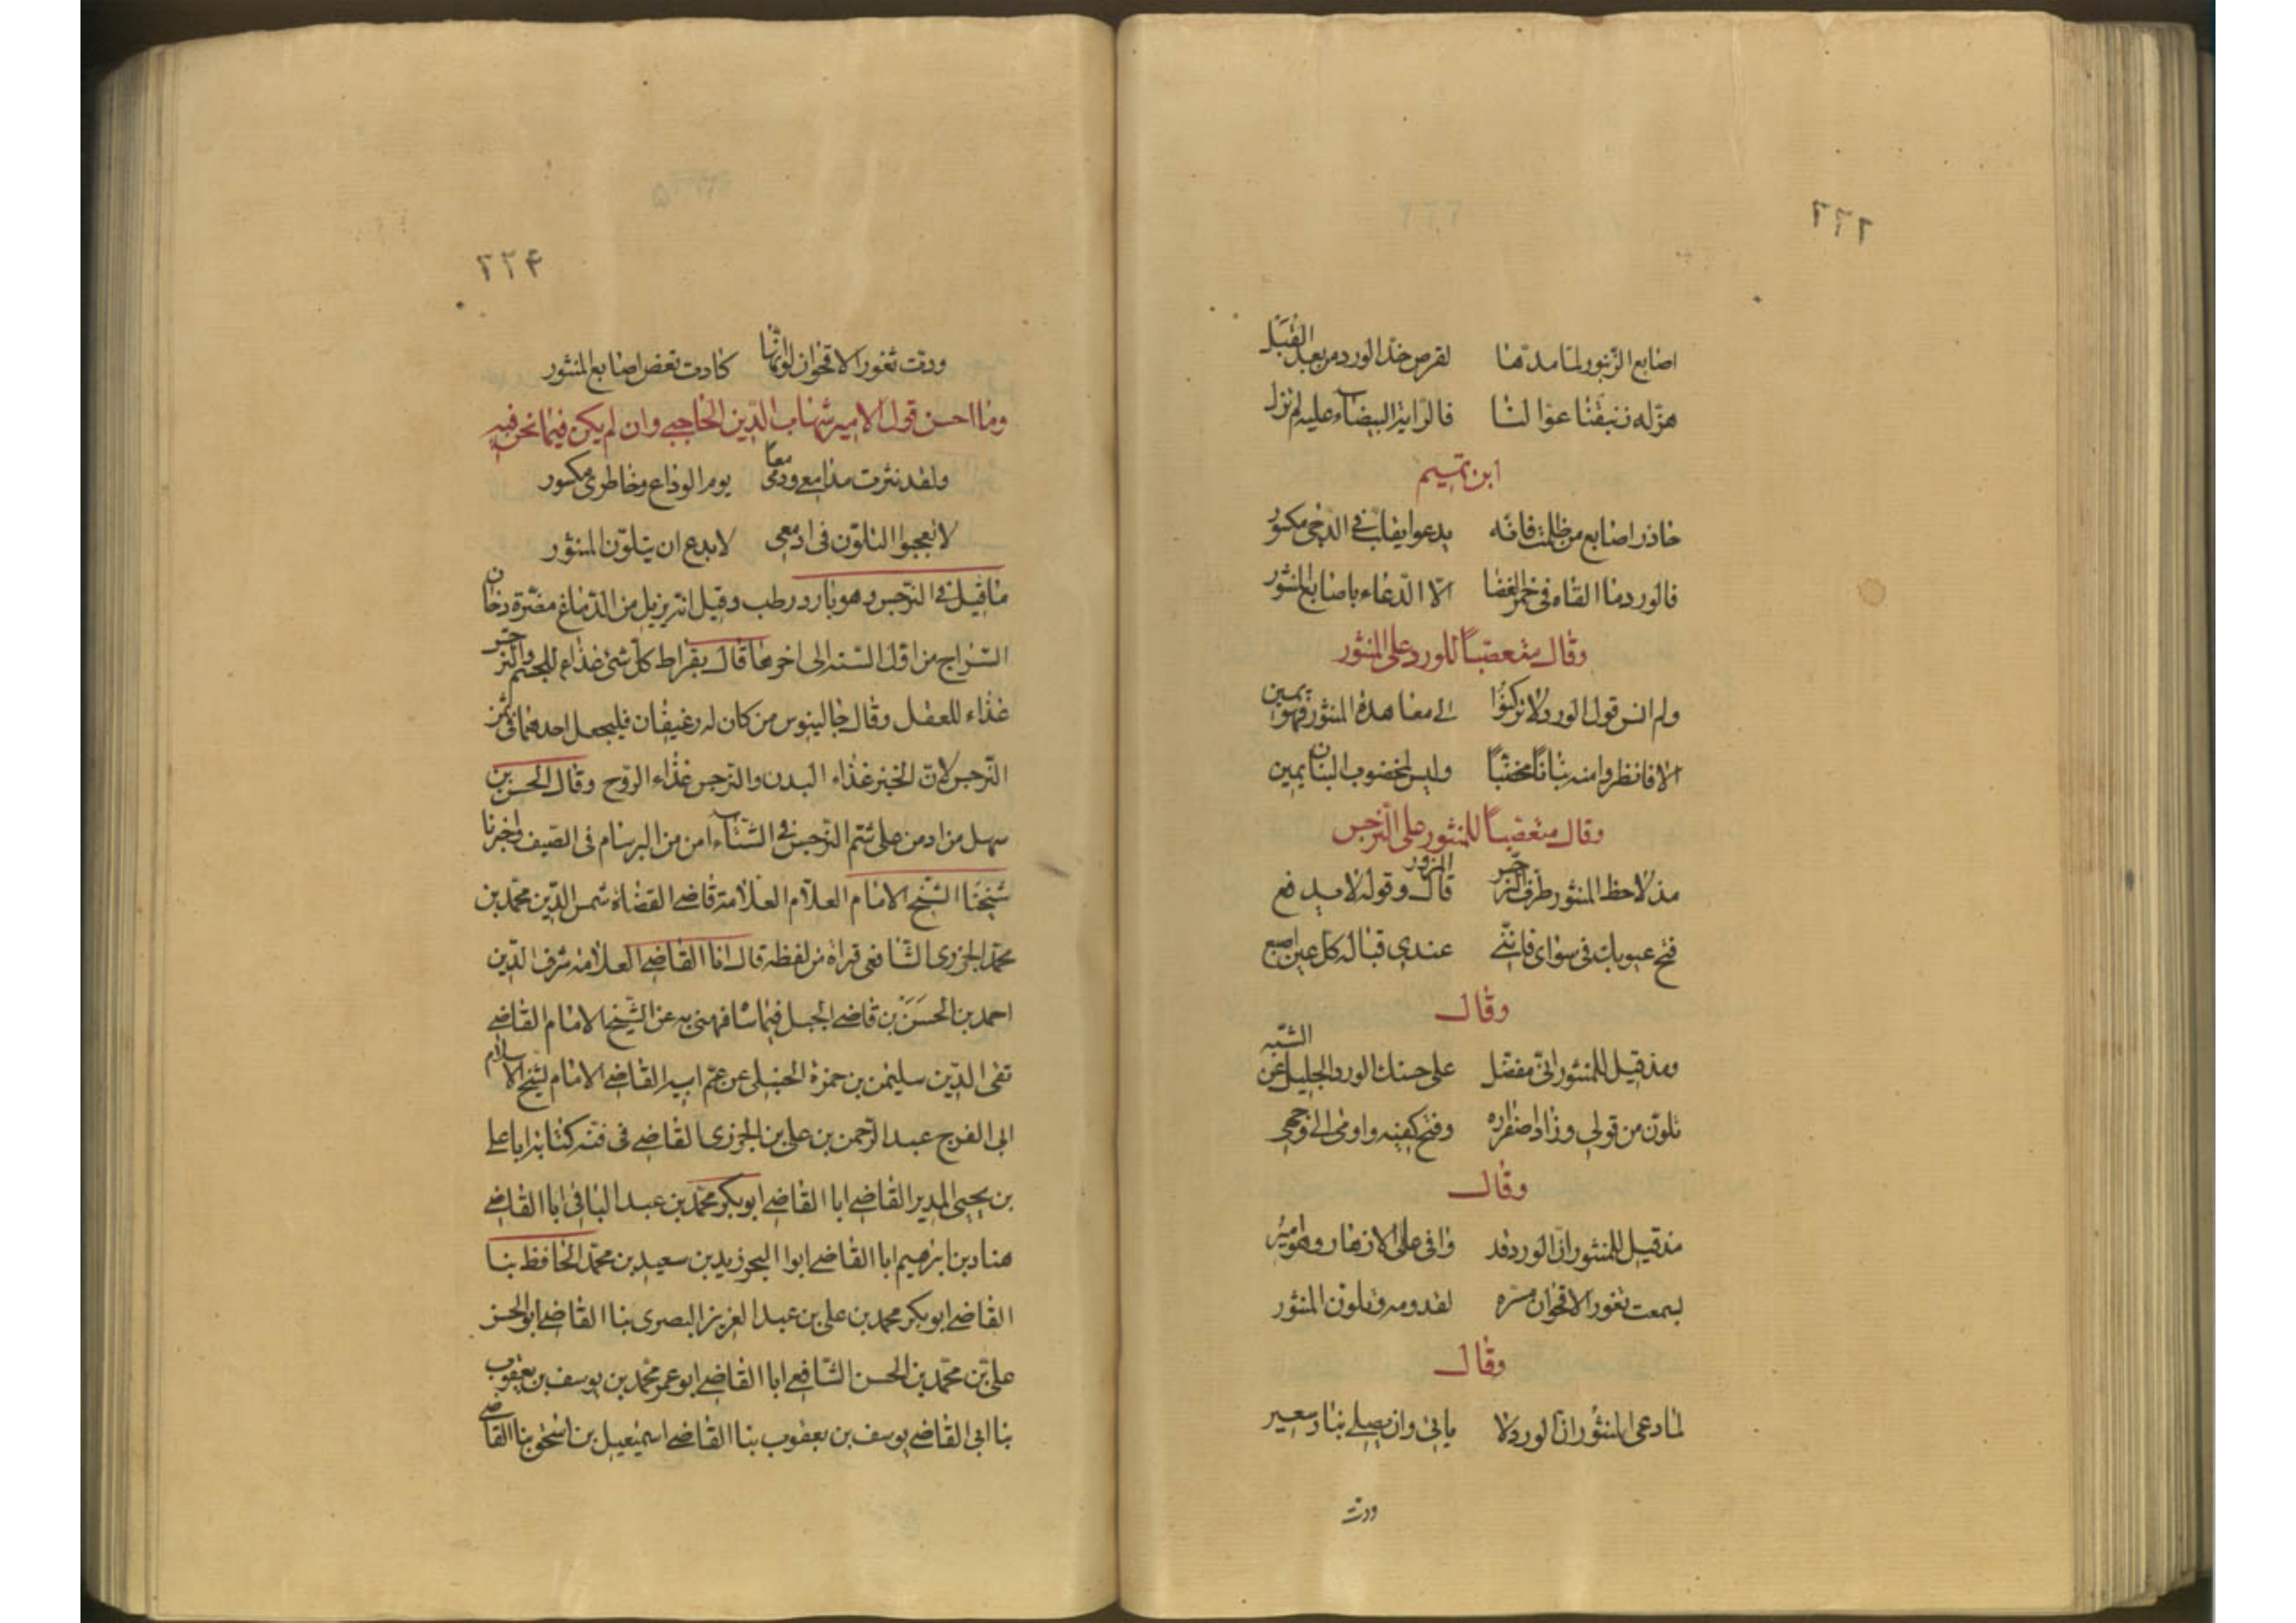 ٢٢٦
اصابع الزنبور لما مدها لقرص خد الورد من بعد القبل
هزله زنبقنا عوالنا فالراية البيضاء عليه لم تزل
ابن تميم
حاذر اصابع من ظلمت فانه يدعو بقلب في الدجى مكسور
فالورد ما القاه في جمر الغضا الّا الدّعاء باصابع المنثور
وقال متعصباً للورد على المنثور
ولم انس قول الورد لا تركنوا الى معاهدة المنثور فهو يمين
الا فانظروا منه بناناً مخضّباً وليس لمخضوب البنان يمين
وقال متعصباً للمنثور على النرجس
مذ لاحظ المنثور طرف النرجس المزور قال وقوله لا يدفع
فتح عيونك في سواي فانني عندي قبالة كل عين اصبع
وقال
ومذ قيل للمنثور اني مفضل على حسنك الورد الجليل عن الشبه
تلوّن من قولي وزاد اصفراره وفتح كفيه واومى الى وجهي
وقال
مذ قيل للمنثور ان الورد قد وافى على الازهار وهو امير
بسمت ثغور الاقحوان مسرة لقدومه وتلون المنثور
وقال
لما دعى المنثور ان الورد لا ياتي وان يصلى بنار سعير
ودت
٢٢٤
ودت ثغور الاقحوان لو انها كادت تعض اصابع المنثور
وما احسن قول الامير شهاب الدين الحاجبي وان لم يكن فيما نحن فيه
ولقد نثرت مدامعي ودمي معاً يوم الوداع وخاطري مكسور
لا تعجبوا التلون في ادمعي لا بدع ان يتلون المنثور
ما قيل في النرجس وهو بارد رطب وقيل انه يزيل من الدماغ مضرّة دخان
السراج من اول السنة الى اخرها قال بقراط كل شئ غذاء للجسم والنرجس
غذاء للعقل وقال جالينوس من كان له رغيفان فليجعل احدهما في ثمن
النرجس لان الخبز غذاء البدن والنرجس غذاء الروح وقال الحسن بن
سهل من ادمن على شم النرجس في الشتاء امن من البرسام في الصيف واخبرنا
شيخنا الشيخ الامام العلام العلامة قاضي القضاة شمس الدين محمد بن
محمد الجزري الشافعي قراة من لفظه قال انا القاضي العلامه شرف الدين
احمد بن الحسن بن قاضي الجبل فيما شافهني به عن الشيخ الامام القاضي
تقى الدين سليمن بن حمزة الحنبلى عن عم ابيه القاضي الامام شيخ الاسلام
ابى الفرج عبد الرحمن بن على بن الجوزى القاضي في كتابه ابا على
بن يحيى المدير القاضي ابا القاضي ابو بكر محمد بن عبد الباقى ابا القاضي
هناد بن ابرهيم ابا القاضي ابوا زيد بن سعيد بن محمد الحافظ بنا
القاضي ابو بكر محمد بن على بن عبد العزيز البصرى بنا القاضي ابو الحسن
على بن محمد بن الحسن الشافعي ابا القاضي ابو عمر محمد بن يوسف بن يعقوب
بنا ابى القاضي يوسف بن يعقوب بنا القاضي اسمعيل بن اسحق بنا القاضي